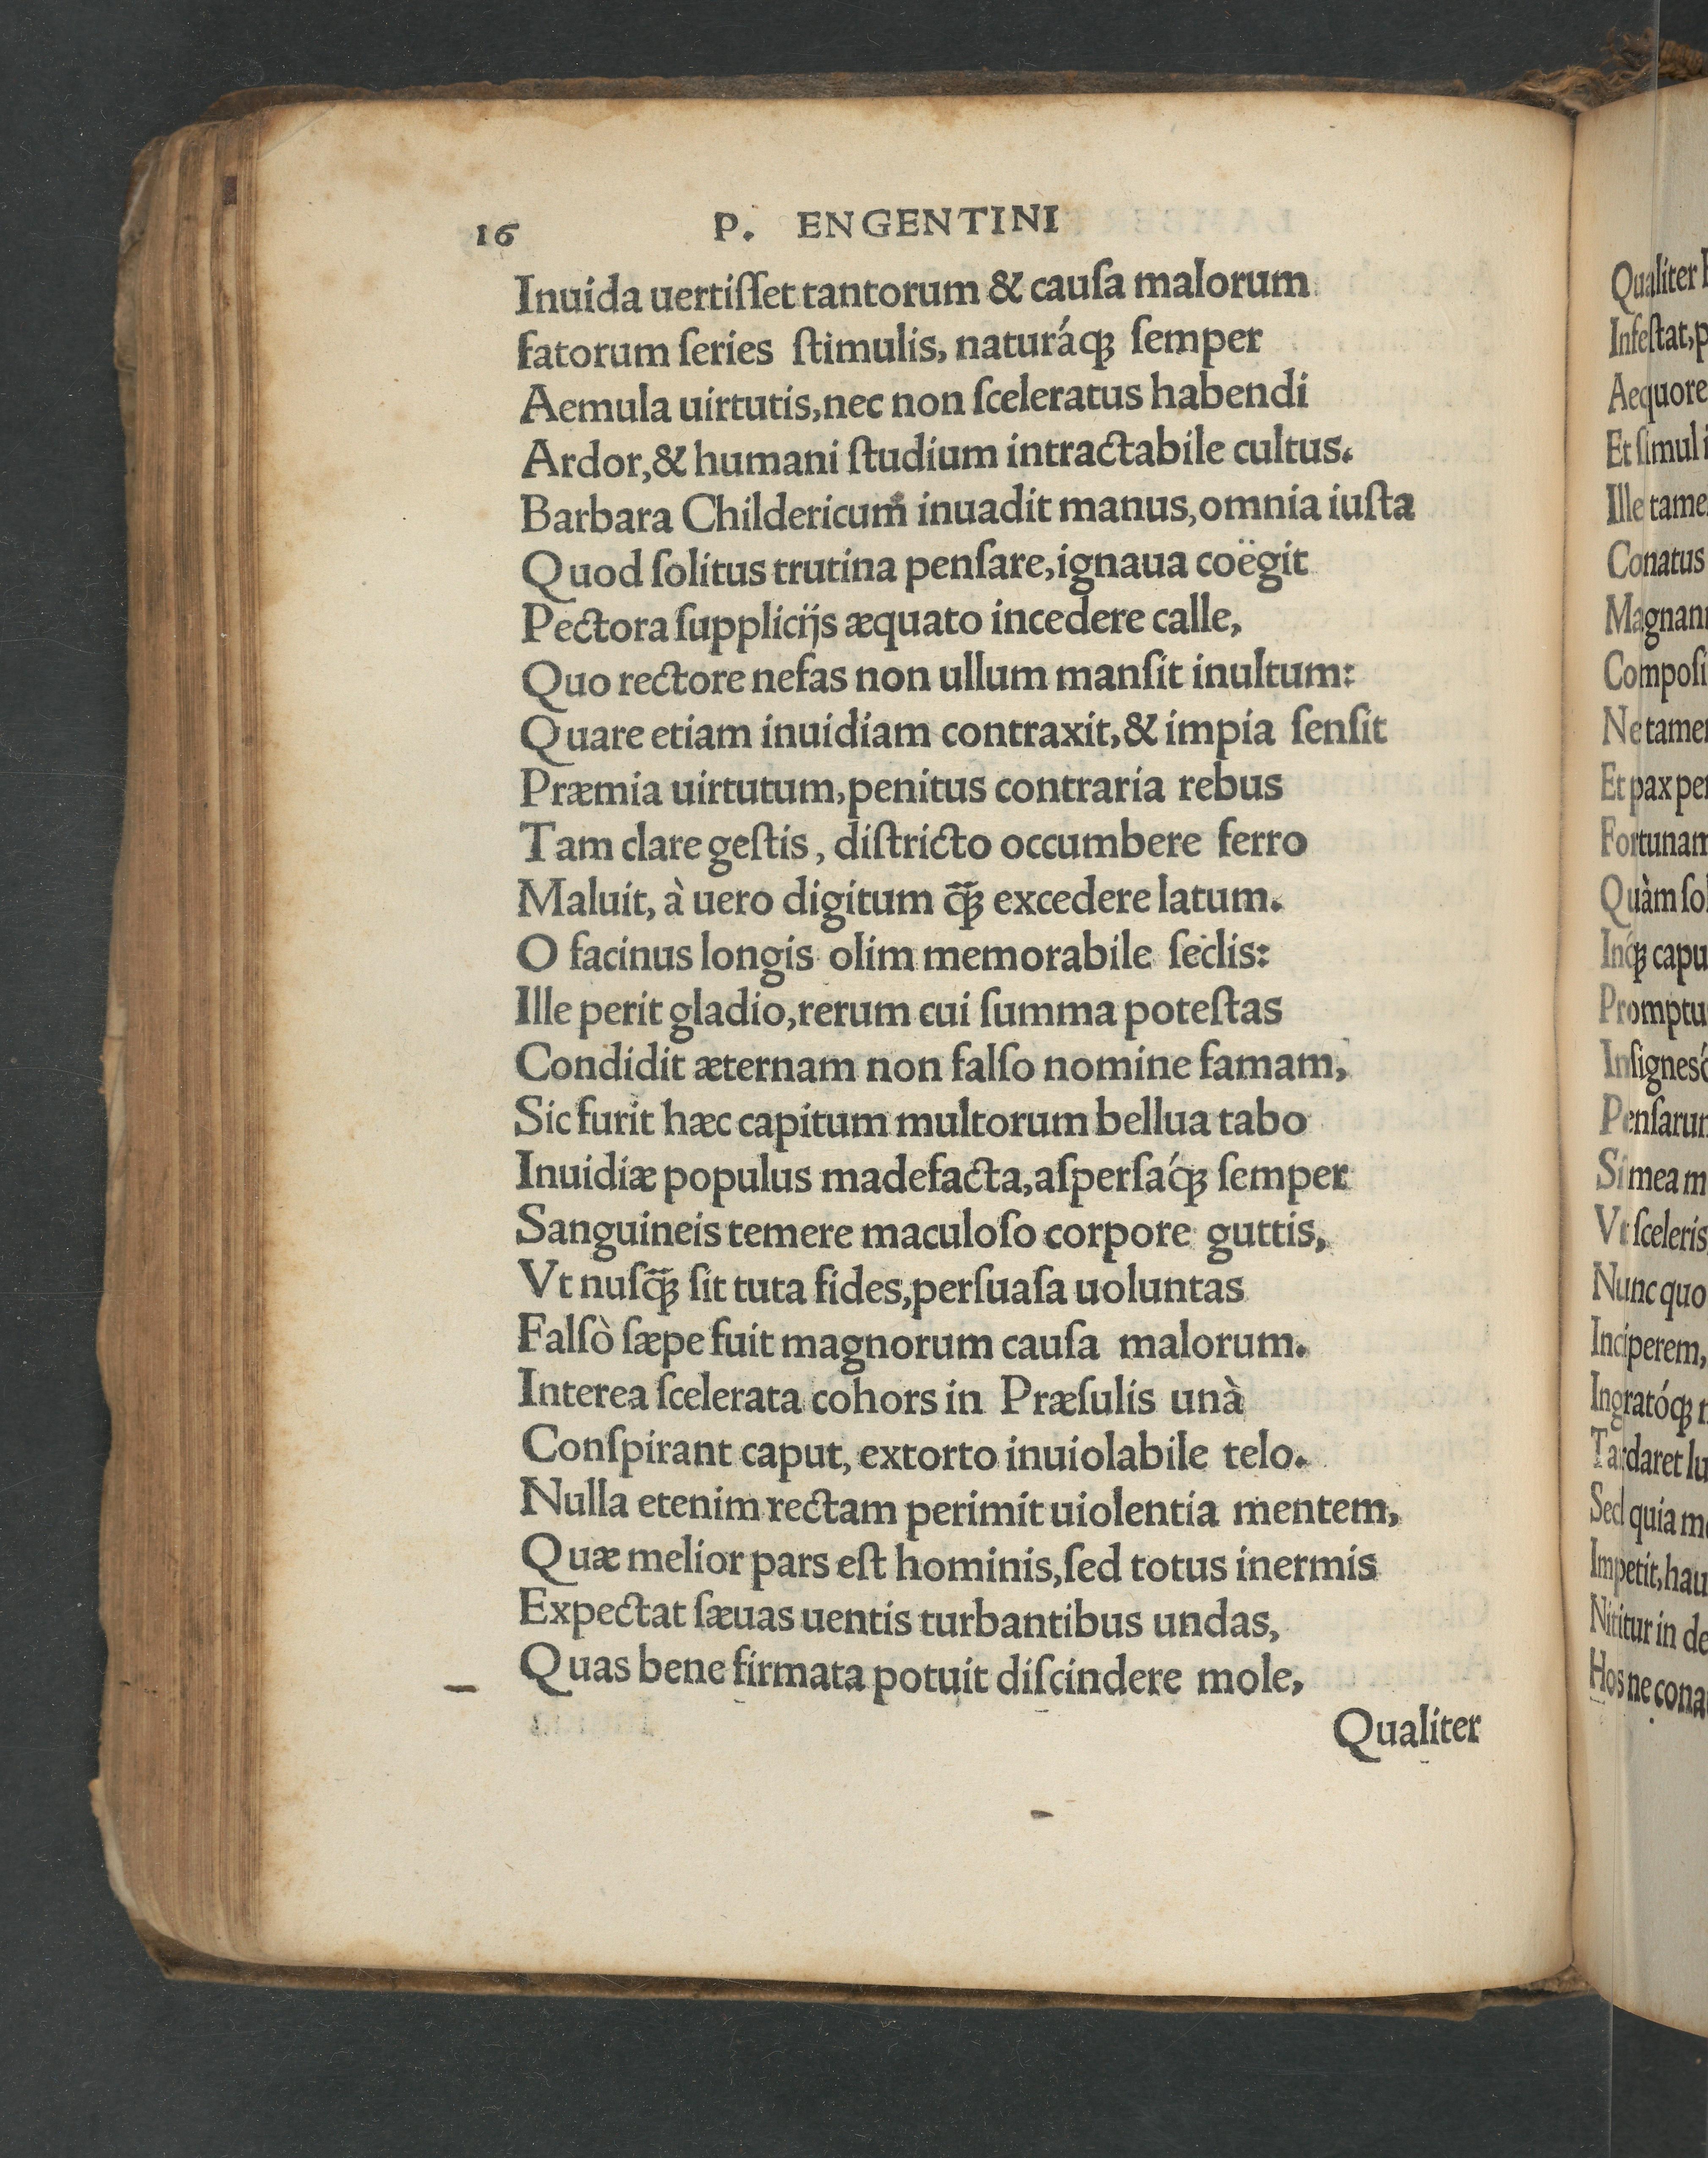 16 P. ENGENTINI
Inuida uertiſſet tantorum & cauſa malorum
fatorum ſeries ſtimulis, naturáꝗ ſemper
Aemula uirtutis,nec non ſceleratus habendi
Ardor,& humani ſtudium intractabile cultus.
Barbara Childericum inuadit manus,omnia iuſta
Quod ſolitus trutina penſare,ignaua coëgit
Pectora ſupplicijs æquato incedere calle,
Quo rectore nefas non ullum manſit inultum:
Quare etiam inuidiam contraxit,& impia ſenſit
Præmia uirtutum,penitus contraria rebus
Tam clare geſtis, diſtricto occumbere ferro
Maluit, à uero digitum ꝗ̃ excedere latum.
O facinus longis olim memorabile ſeclis:
Ille perit gladio,rerum cui ſumma poteſtas
Condidit æternam non falſo nomine famam,
Sic furit hæc capitum multorum bellua tabo
Inuidiæ populus madefacta,aſperſáꝗ ſemper
Sanguineis temere maculoſo corpore guttis,
Vt nuſꝗ̃ ſit tuta fides,perſuaſa uoluntas
Falſò ſæpe fuit magnorum cauſa malorum.
Interea ſcelerata cohors in Præſulis unà
Conſpirant caput, extorto inuiolabile telo.
Nulla etenim rectam perimit uiolentia mentem,
Quæ melior pars eſt hominis,ſed totus inermis
Expectat ſæuas uentis turbantibus undas,
Quas bene firmata potuit diſcindere mole,
Qualiter
Qualiter
Aequore
Et ſimul
Ille
Conatus
Ne
Et pax
Quàm
Inꝗ́
Si mea
Vt ſceleris
Nunc quo
Inciperem,
Ingratóꝗ
Tardaret
Sed quia
Impetit,
Nititur in
Hos ne